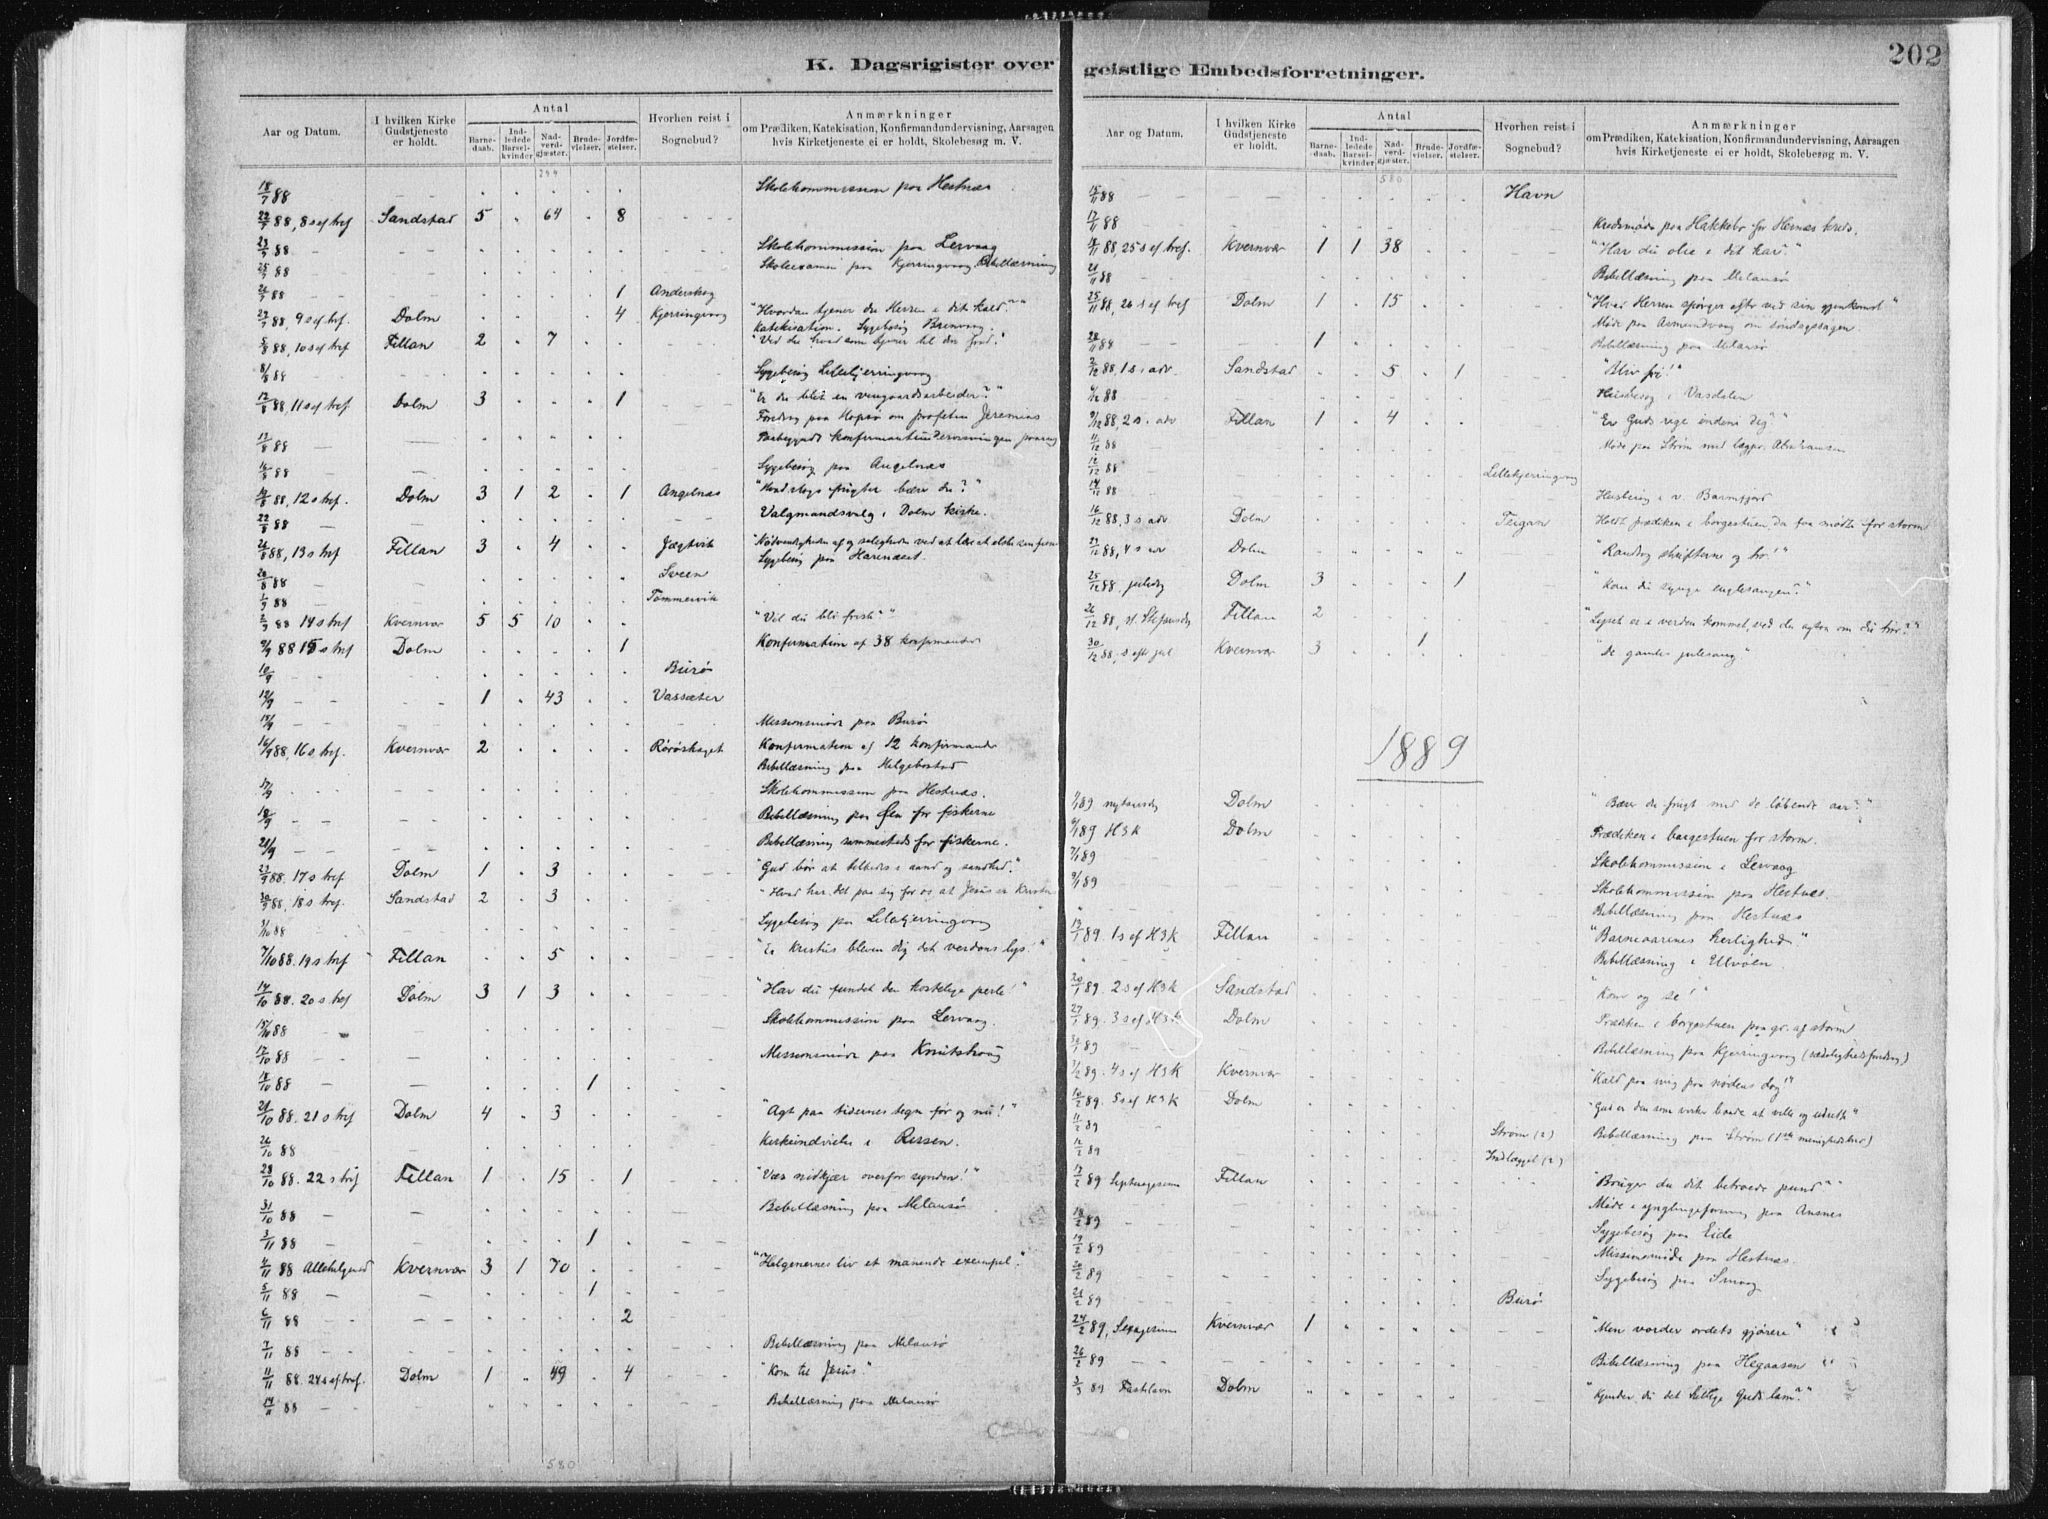 202
K. Dagsrigister over geistlige Embedsforretninger.
Aar og Datum. I hvilken Kirke Gudstjeneste er holdt. Antal Barnedaab. Indledede Barselkvinder Nadverdgjæster. Brudevielser. Jordfæstelser. Hvorhen reist i Sognebud? Anmærkninger om Prædiken, Katekisation, Konfirmandundervisning, Aarsagen hvis Kirketjeneste ei er holdt, Skolebesøg m. V.
299
18/7 88 Skolekommission paa Hestnæs
22/7 88, 8 s ef tref Sandstad 5 64 8
23/7 88 Skolekommission paa Lervaag
25/7 88 Skoleexamen paa Kjerringvaag. Bibellæsning
26/7 88 1 Anderskog
29/7 88, 9 s ef tref. Dolm 4 Kjerringvaag "Hvordan tjener du Herren i dit kald?"
Katekisation. Sygebesøg
5/8 88, 10 s ef tref Fillan 2 7 "Ved du hvad som tjener til din fred?"
8/8 88 Sygebesøg Lillekjerringvaag
12/8 88, 11 s ef tref. Dolm 3 1 "Er du bleven en vingaardsarbeider?"
Foredrag paa Hopsø om profeten Jeremias
13/8 88 Paabegyndt konfirmantundervisningen
16/8 88 Sygebesøg paa Angelnæs
19/8 88, 12 s tref. Dolm 3 1 2 1 Angelnæs "Hvad slags frugter bære du?"
22/8 88 Valgmandsvalg i Dolm kirke.
26/8 88, 13 s tref Fillan 3 4 Jægtvik
Sygebesøg paa Havnæset
28/8 88 Sveen
1/9 88 Tømmervik
2/9 88 14 s tref Kvernvær 5 5 10 "Vil du bli frisk?"
9/9 88 15 s tref Dolm 1 Konfirmation af 38 konfirmander
10/9 Burø
12/9 1 43 Vassæter
15/9 Missionsmøde paa Burø
16/9 88, 16 s tref. Kvernvær 2 Rørøskaget Konfirmation af 12 konfirmander
Bibellæsning paa Helgebostad
17/9 Skolekommission paa Hestnæs.
18/9 Bibellæsning paa Øen for fiskerne
21/9 Bibellæsning sammesteds for fiskerne.
23/9 88. 17 s tref Dolm 1 3 "Gud bør at tilbedes i aand og sandhed."
30/9 88, 18 s tref. Sandstad 2 3 "Hvad har det paa sig for os at Jesus er Kristus
3/10 88 Sygebesøg paa Lillekjerringvaag
7/10 88. 19 s tref Fillan 5 "Er Kristus bleven dig det verdens lys?"
14/10 88. 20 s tref Dolm 3 1 3 "Har du fundet den kostelige perle?"
15/10 88 Skolekommission paa Lervaag.
17/10 88 Missionsmøde paa Knutshaug
18/10 88 1
21/10 88. 21 s tref Dolm 4 3 "Agt paa tidernes tegn før og nu!"
26/10 88 Kirkeindvielse i Rissen.
28/10 88. 22 s tref Fillan 1 15 1 "Vær nidkjær overfor synden!"
31/10 88 Bibellæsning paa Melansø
3/11 88 1
4/11 88 Allehelgensd Kvernvær 3 1 70 "Helgenernes liv et manende exempel."
5/11 88 1
6/11 88 2
7/11 88 Bibellæsning paa Melansø
11/11 88. 24 s ef tref. Dolm 1 49 4 "Kom til Jesus."
14/11 88 Bibellæsning paa Melansø
580
Aar og Datum. I hvilken Kirke Gudstjeneste er holdt. Antal Barnedaab. Indledede Barselkvinder Nadverdgjæster. Brudevielser. Jordfæstelser. Hvorhen reist i Sognebud? Anmærkninger om Prædiken, Katekisation, Konfirmandundervisning, Aarsagen hvis Kirketjeneste ei er holdt, Skolebesøg m. V.
580
15/11 88 Havn
17/11 88 Kredsmøde paa Hakkebo for Hernæs kreds.
18/11 88, 25 s ef tref. Kvernvær 1 1 38 "Har du olie i dit kar?"
21/11 88 Bibellæsning paa Melansø
25/11 88, 26 s ef tref Dolm 1 15 "Hvad Herren spørger efter ved sin gjenkomst"
Møde paa Asmundvaag om søndagssagen.
28/11 88 1 Bibellæsning paa Melansø
2/12 88, 1 s i adv Sandstad 5 1 "Bliv fri!"
6/12 88 Husbesøg i Vasdalen
9/12 88, 2 s. adv Fillan 1 4 "Er Guds rige inden i dig?"
11/12 88 Møde paa Strøm med lægpr. Abrahamsen
12/12 88 Lillekjerringvaag
14/12 88 Husbesøg i v. Barmfjord
16/12 88, 3 s. adv Dolm Teigan Holdt prædiken i borgestuen, da faa mødte for storm
23/12 88, 4 s adv Dolm "Randsag skrifterne og tro!"
25/12 88. juledag Dolm 3 1 "Kan du synge englesangen?"
26/12 88, st. Stefansdag Fillan 2 "Lyset er i verden kommet, ved du agten om du tror?"
30/12 88, s efter jul Kvernvær 3 1 "De gamles julesang"
1889
1/1 89 nytaarsdag Dolm "Bærer du frugt med de løbende aar?"
6/1 89 H3K Dolm Prædiken i borgestuen for storm.
7/1 89 Skolekommission i Lervaag
9/1 89 Skolekommission paa Hestnæs.
" Bibellæsning paa Hestnæs
13/1 89. 1 s ef H3K Fillan "Barneaarenes herlighed."
" Bibellæsning i Ulvøen
20/1 89. 2 s ef H3K Sandstad "Kom og se!"
27/1 89. 3 s ef H3K Dolm Prædiken i borgestuen paa gr. af storm
89 Bibellæsning paa Kjerringvaag (sædelighedsforedrag)
3/2 89. 4 s ef H3K Kvernvær "Kald paa mig paa nødens dag!"
10/2 89. 5 s ef H3K Dolm "Gud er den som virker baade at ville og udrette"
11/2 89 Strøm (2) Bibellæsning paa Strøm (1ste menighedsbrev)
12/2 89 Indlægget (2)
17/2 89 Septuagesima Fillan "Bruger du dit betroede pund?"
18/2 89 Møde i ynglingeforening paa Ansnes
19/2 89 Sygebesøg paa Eide
Missionsmøde paa Hestnæs.
20/2 89 Sygebesøg paa Smaag
21/2 89 Burø
24/2 89, Sexagesima Kvernvær 1 "Men vorder ordets gjørere"
26/2 89 Bibellæsning paa Hegaasen
3/3 89 Fastelavn Dolm "Kjender du det stille Guds lam?"